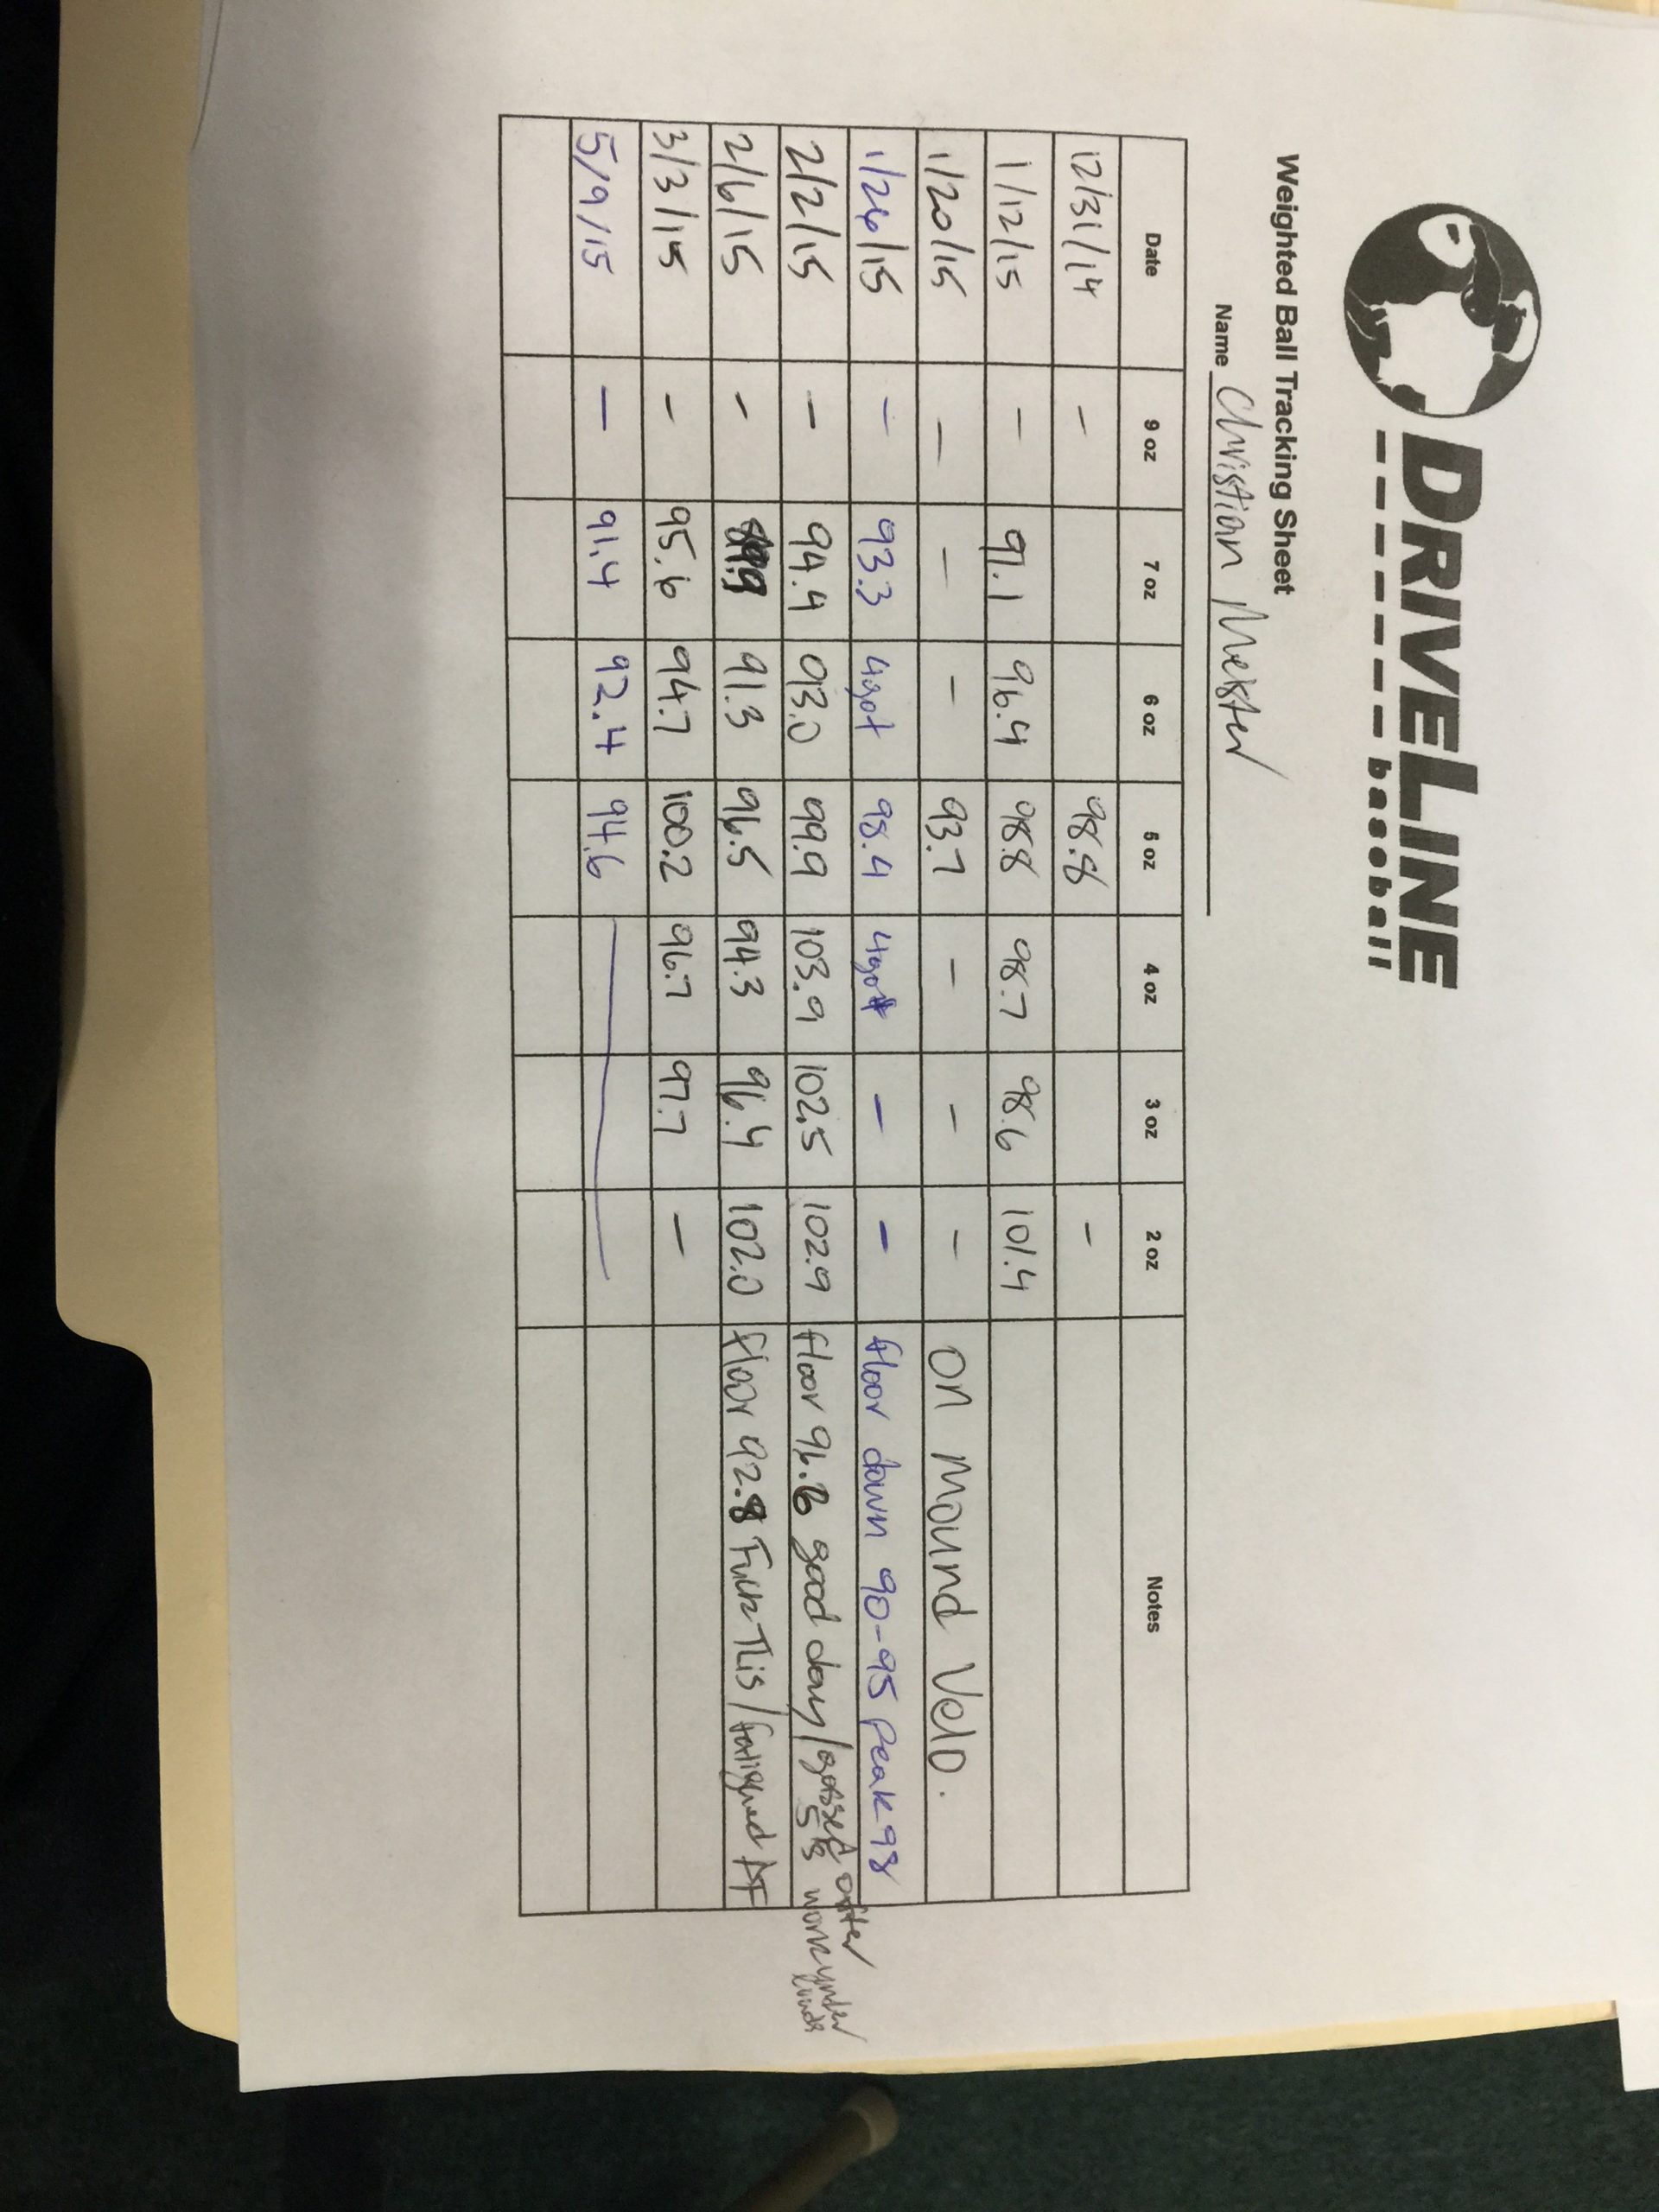 DRIVELINE
baseball
Weighted Ball Tracking Sheet
Name Christian Meister
Date 9 oz 7 oz 6 oz 5 oz 4 oz 3 oz 2 oz Notes
12/31/14 - 98.8 -
1/12/15 - 91.1 96.4 98.8 98.7 98.6 101.4
1/20/15 - - - 93.7 - - - On Mound Velo.
1/26/15 - 93.3 4got 98.4 4got - - floor down 90-95 Peak 98
2/2/15 - 94.4 93.0 99.9 103.9 102.5 102.9 floor 96.6 good day/gassed after
5's work under
2/6/15 - 91.3 96.5 94.3 96.4 102.0 floor 92.8 Fuck This/fatigued AF
3/3/15 - 95.6 94.7 100.2 96.7 97.7 -
5/9/15 - 91.4 92.4 94.6